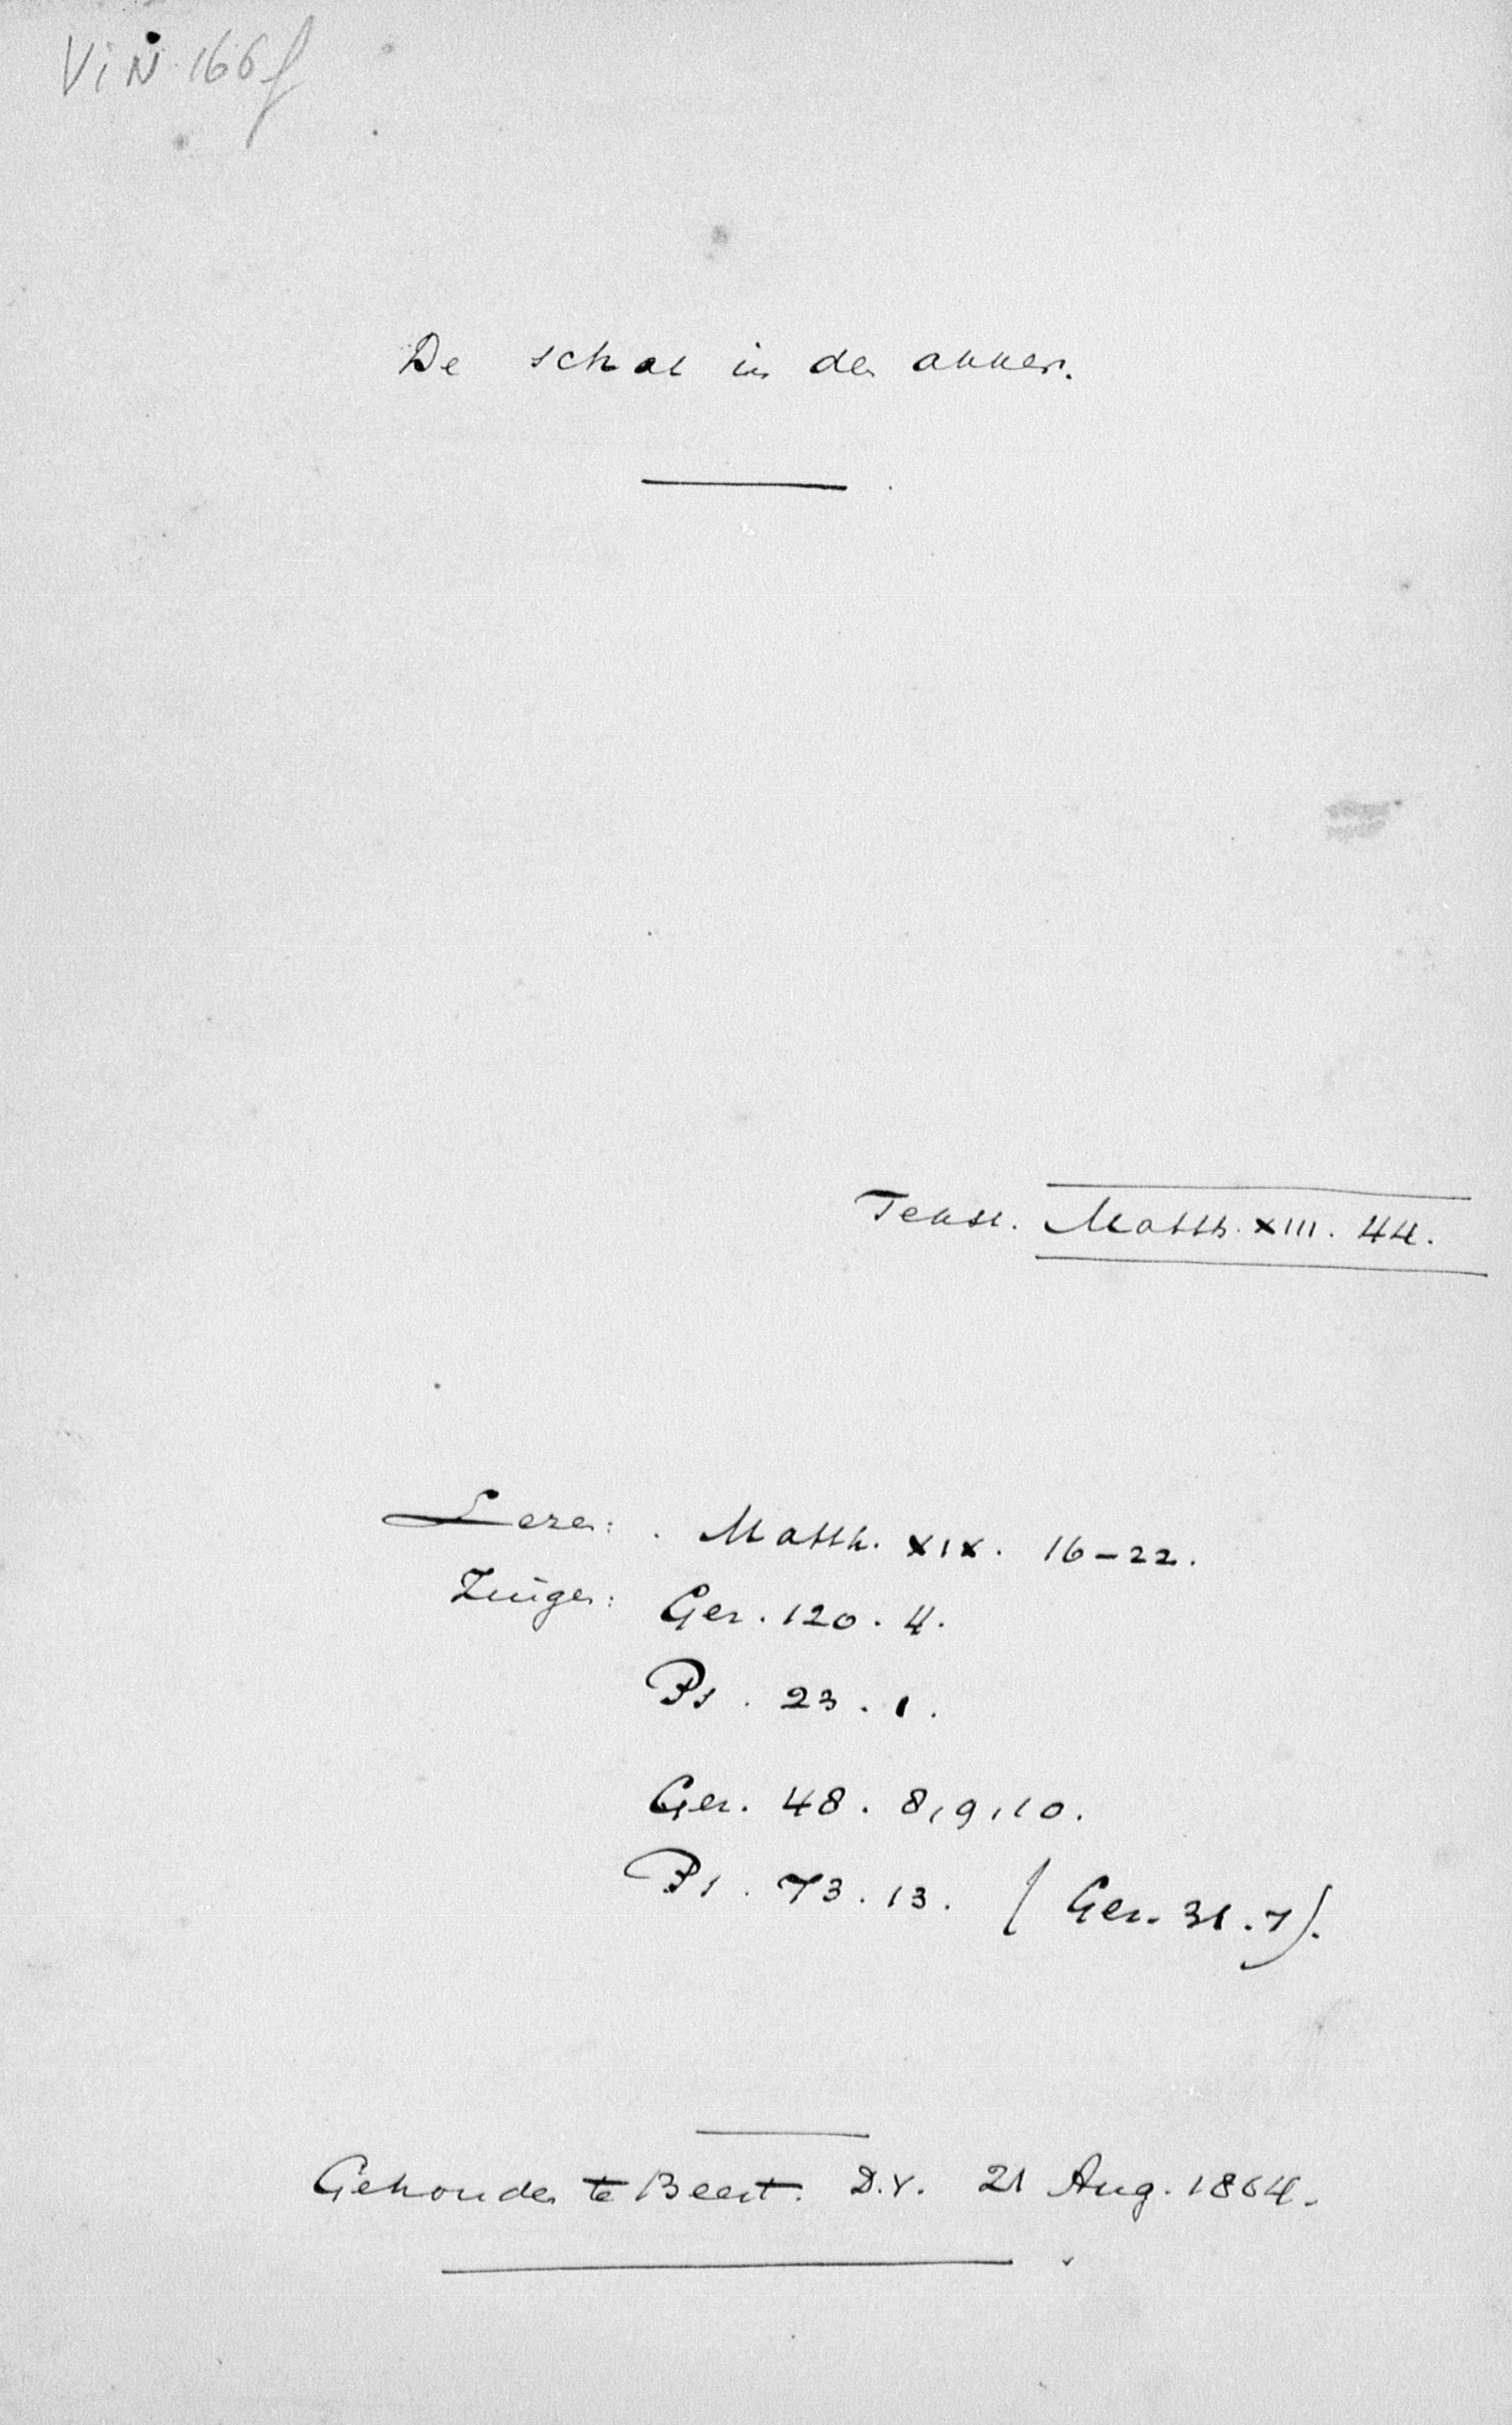 ViN 166f
De schat in den akker.
Tekst. Matth. XIII. 44.
Lezen: . Matth. XIX. 16-22.
Zingen: Gez. 120. 4.
Ps. 23. 1.
Gez. 48. 8, 9, 10.
Ps. 73. 13. (Gez. 31. 7).
Gehouden te Beest. D.V. 21 Aug. 1864.